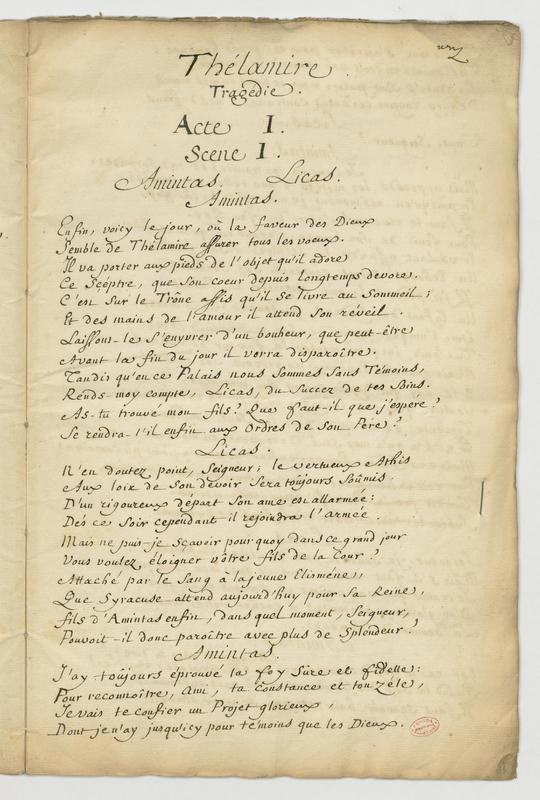 Thélamire.
Tragédie.
Acte I.
Scene I.
Amintas. Licas.
Amintas.
Enfin, voicy le jour, où la faveur des Dieux
Semble de Thélamire assurer tous les voeux.
Il va porter aux pieds de l'objet qu'il adore
Ce Scéptre, que son coeur depuis longtemps devore.
C'est sur le Trône assis qu'il se livre au Sommeil;
Et des mains de l'amour il attend son réveil.
Laissons-le s'enyvrer d'un bonheur, que peut-être
Avant la fin du jour il verra disparoître.
Tandis qu'en ce Palais nous sommes sans Témoins,
Rends-moy compte, Licas, du Succez de tes Soins.
As-tu trouvé mon fils? Que faut-il que j'espére?
Se rendra-t'il enfin aux Ordres de son Pére?
Licas.
N'en doutez point, Seigneur; le vertueux Athis
Aux loix de son devoir sera toûjours soûmis.
D'un rigoureux départ son ame est allarmée:
Dès ce Soir cependant il rejoindra l'armée.
Mais ne puis-je sçavoir pourquoy dans ce grand jour
Vous voulez éloigner vôtre fils de la Cour?
Attaché par le Sang à la jeune Elismène,
Que Syracuse attend aujourd'huy pour sa Reine,
fils d'Amintas enfin, dans quel moment, Seigneur,
Pouvoit-il donc paroître avec plus de Splendeur?
Amintas.
J'ay toûjours éprouvé ta foy Sûre et fidelle:
Pour reconnoître, Ami, ta Constance et ton zéle,
Je vais te confier un Projet glorieux,
Dont je n'ay jusqu'icy pour témoins que les Dieux.